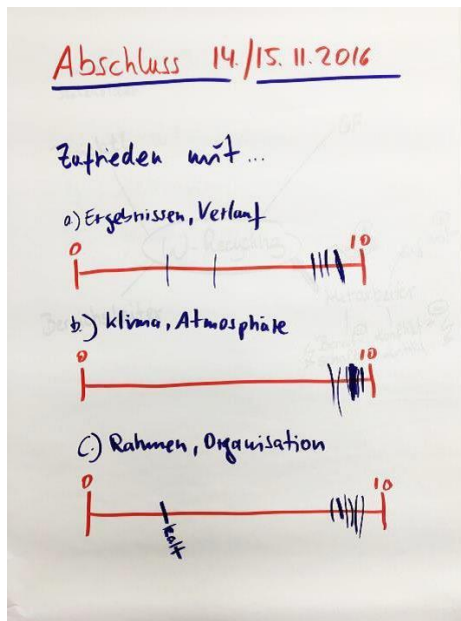 Abschluss 14./15.11.2016
Zufrieden mit...
a) Ergebnissen, Verlauf
0 10
b.) Klima, Atmosphäre
0 10
c.) Rahmen, Organisation
0 10
kalt